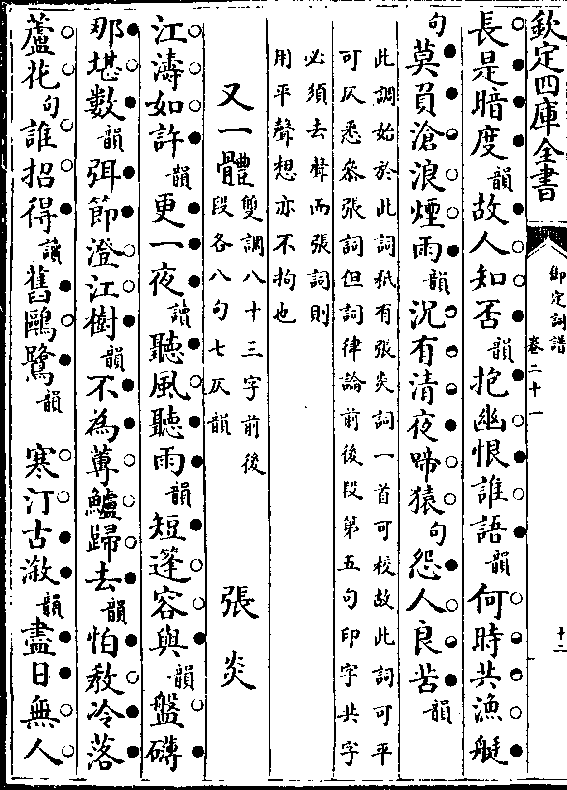 欽定四庫全書
御定詞譜
卷二十一
十二
長是暗度韻故人知否韻抱幽恨誰語韻何時共漁艇
句莫負滄浪煙雨韻況有清夜啼猿句怨人良苦韻
此調始於此詞秖有張炎詞一首可校故此詞可平
可仄悉叅張詞但詞律論前後段第五句印字共字
必須去聲而張詞則
用平聲想亦不拘也
又一體
雙調八十三字前後
段各八句七仄韻
張炎
江濤如許韻更一夜讀聽風聽雨韻短篷容與韻盤礡
那堪數韻弭節澄江樹韻不為蓴鱸歸去韻怕教冷落
蘆花句誰招得讀舊鷗鷺韻
寒汀古漵韻盡日無人